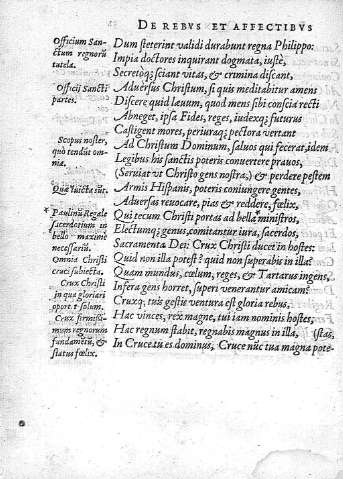 DE REBVS ET AFFECTIBVS
Officium San-
ctum regnorũ
tutela.
Officij Sancti
partes.
Scopus noster,
quò tendũt om-
nia.
Quæ iuicta sũt.
* Paulinũ Regale
sacerdotium in
bello maximè
necessariũ.
Omnia Christi
cruci subiecta.
Crux Christi
in qua gloriari
oport. t solum.
Crux firmissi-
mum regnorum
fundamẽtũ, &
status fœlix.
Dum steterint validi durabunt regna Philippo:
Impia doctores inquirant dogmata, iustè,
Secretoq; sciant vitas, & crimina discant,
Aduersus Christum, si quis meditabitur amens
Discere quid læuum, quod mens sibi conscia recti
Abneget, ipsa Fides, reges, iudexq; futurus
Castigent mores, periuraq; pectora vertant
Ad Christum Dominum, saluos qui fecerat, idem
Legibus his sanctis poteris conuertere prauos,
(Seruiat vt Christo gens nostra,) & perdere pestem
Armis Hispanis, poteris coniungere gentes,
Aduersas reuocare, pias & reddere, fœlix,
Qui tecum Christi portas ad bella* ministros,
Electumq; genus, comitantur iura, sacerdos,
Sacramenta Dei: Crux Christi ducet in hostes:
Quid non illa potest? quid non superabis in illa?
Quam mundus, cœlum, reges, & Tartarus ingens,
Infera gens horret, superi venerantur amicam?
Cruxq; tuis gestis ventura est gloria rebus,
Hac vinces, rex magne, tui iam nominis hostes,
Hac regnum stabit, regnabis magnus in illa, (stas,
In Cruce tu es dominus, Cruce nũc tua magna pote-